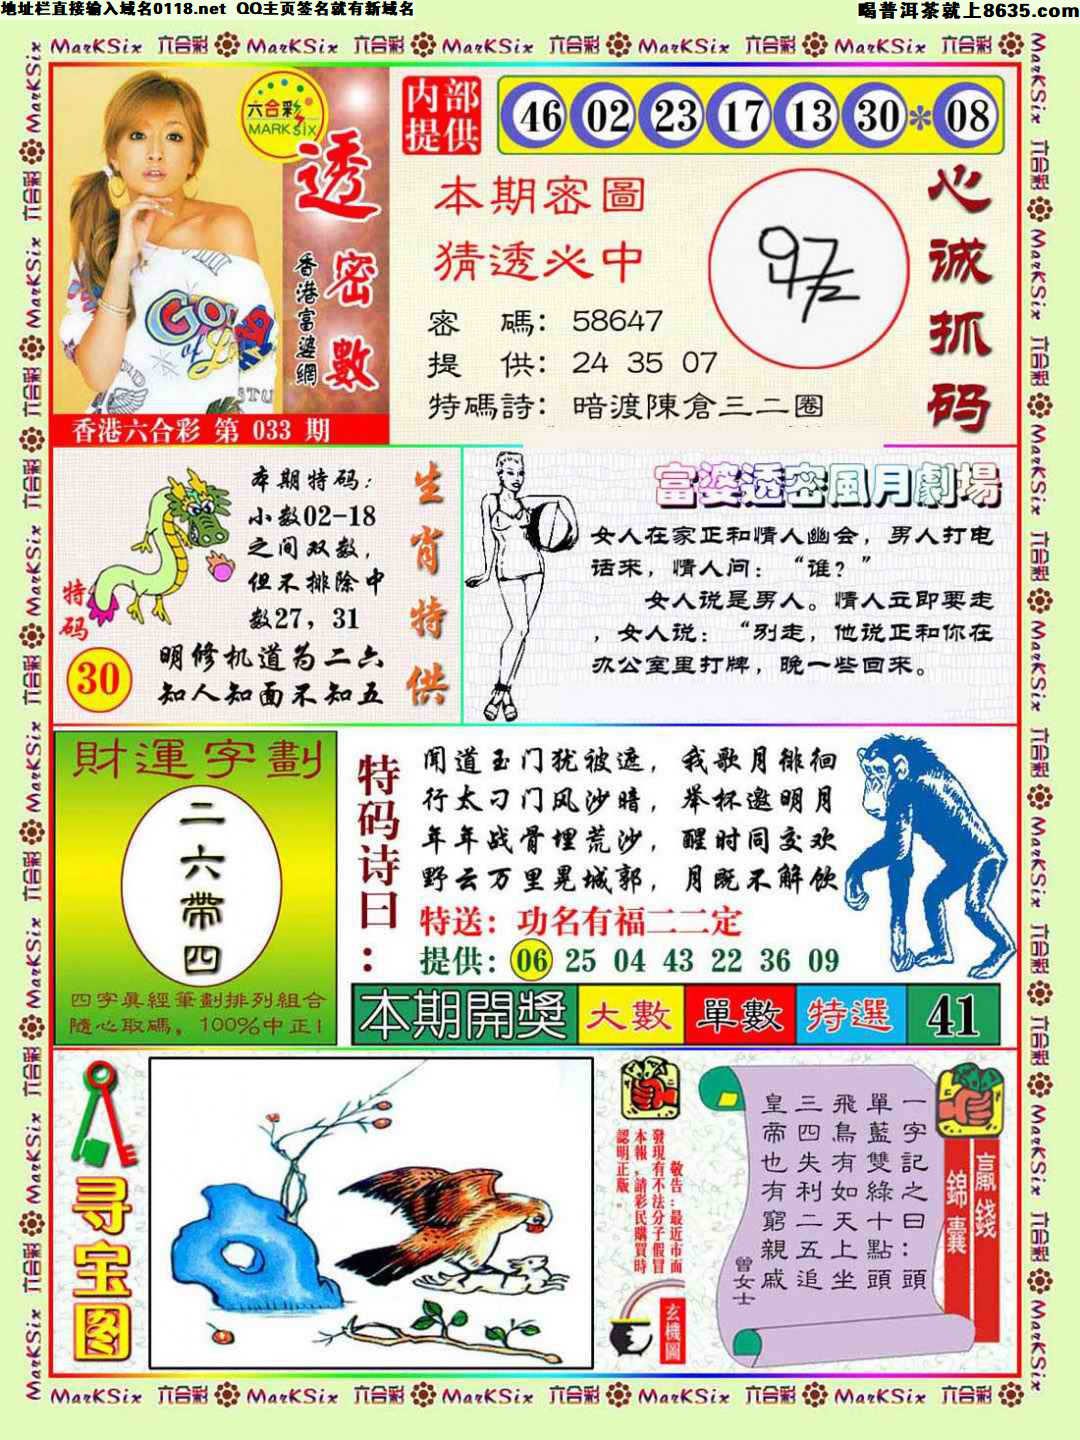 地址栏直接输入域名0118.net  QQ主页签名就有新域名
喝普洱茶就上8635.com
MarKSix 六合彩 MarKSix 六合彩 MarKSix 六合彩 MarKSix 六合彩 MarKSix 六合彩
六合彩
MARK SIX
透密數
香港富婆網
香港六合彩 第 033 期
内部提供
46 02 23 17 13 30 * 08
本期密圖
猜透必中
密 碼: 58647
提 供: 24 35 07
特碼詩: 暗渡陳倉三二圈
97
心诚抓码
本期特码:
小数02-18
之间双数,
但不排除中
数27, 31
特码
30
明修机道为二六
知人知面不知五
生肖特供
富婆透密風月劇場
女人在家正和情人幽会, 男人打电
话来, 情人问: “谁? ”
女人说是男人。情人立即要走
, 女人说: “别走, 他说正和你在
办公室里打牌, 晚一些回来。
財運字劃
二六帶四
四字眞經筆劃排列組合
隨心取碼, 100%中正!
特码诗曰:
闻道玉门犹被遮, 我歌月徘徊
行太刁门风沙暗, 举杯邀明月
年年战骨埋荒沙, 醒时同交欢
野云万里晃城郭, 月既不解饮
特送: 功名有福二二定
提供: 06 25 04 43 22 36 09
本期開獎 大數 單數 特選 41
寻宝图
敬告:最近市面
發現有不法分子假冒
本報,請彩民購買時
認明正版。
玄機圖
一字記之曰:頭
單藍雙綠十點頭
飛鳥有如天上坐
三四失利二五追
皇帝也有窮親戚
曾女士
贏錢
錦囊
MarKSix 六合彩 MarKSix 六合彩 MarKSix 六合彩 MarKSix 六合彩 MarKSix 六合彩